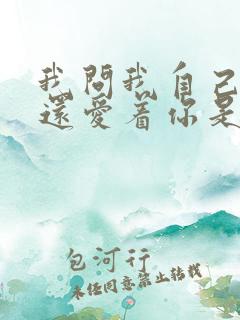 我問我自己
還愛着你是
包河行
未经同意禁止转载